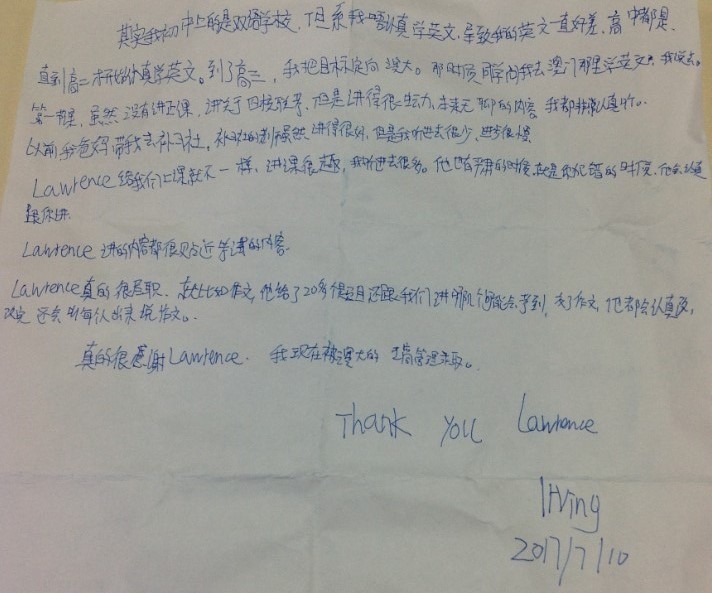 其实我初中上的是双语学校,但系我唔认真学英文,导致我的英文一直好差,高中都是.
直到高二才开始认真学英文。到了高三,我把目标定向澳大。那时候同学问我去澳门那里学英文,我说去。
第一节课,虽然没有讲正课,讲关于口校联考,但是讲得很生动,本来无聊的内容我都非常认真听。
以前,我爸妈带我去补习社,补习社的老师虽然讲得很好,但是我听进去很少,进步很慢
Lawrence 给我们上课就不一样,讲课很有趣,我听进去很多。他也有严肃的时候,就是你犯错的时候,他会
跟你讲.
Lawrence 讲的内容都很贴近考试的内容.
Lawrence真的很尽职.就比如作文,他给了20多个题目还跟我们讲哪几个可能会考到,交了作文,他都会认真改,
改完还会
真的很感谢Lawrence. 我现在被澳大的 工商管理录取。
Thank you Lawrence
Irving
2017/7/10